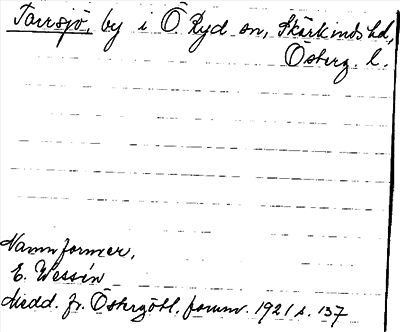 Torrsjö, by i Ö. Ryd sn, Skärkinds hd,
Österg. l.
Namnformer,
E. Wessén
Medd. fr. Östergötl. fornm. 1921 s. 137